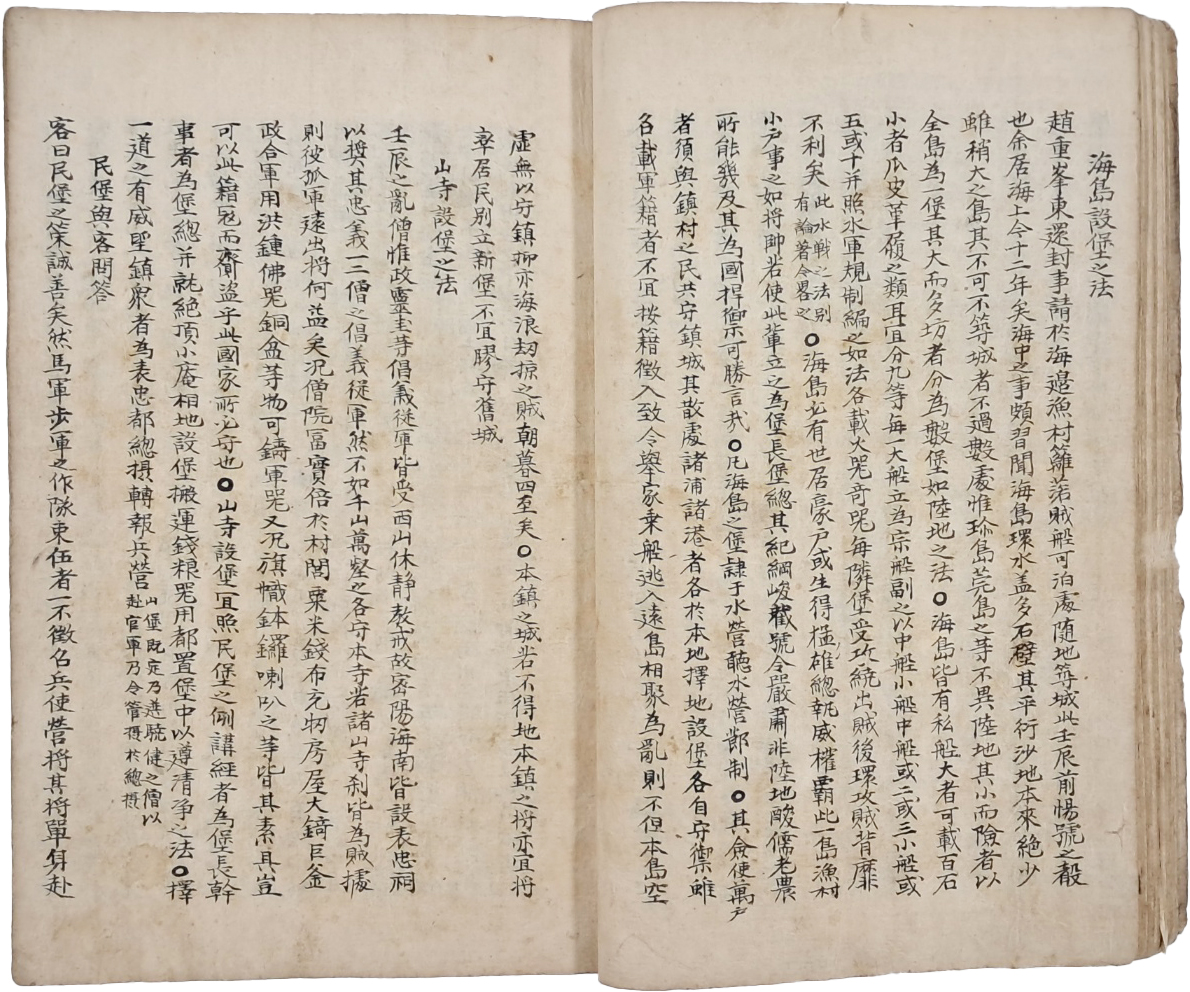 海島設堡之法
趙重峯東還封事請於海邉漁村籬落賊船可泊處随地築城此壬辰前惕號之教
也余居海上今十二年矣海中之事頗習聞海島環水盖多石壁其平衍沙地本來絶少
雖稍大之島其不可不築城者不過數處惟珍島莞島之等不異陸地其小而險者以
全島為一堡其大而多坊者分為數堡如陸地之法○海島皆有私船大者可載百石
小者瓜皮革履之類耳宜分九等每一大船立為宗船副之以中船小船中船或二或三小船或
五或十并照水軍規制編之如法各載火器奇器每隣堡受攻統出賊後環攻賊背靡
不利矣此水戰之法别有論著今畧之○海島必有世居豪戶或生得橀雄總執威權覇此一島漁村
小戶事之如将帥若使此輩立之為堡長堡總其紀綱峻截號令嚴肅非陸地酸儒老農
所能幾及其為國捍禦可勝言哉○凡海島之堡隷于水營聽水營節制○其僉使萬戶
者須與鎮村之民共守鎮城其散處諸浦諸港者各於本地擇地設堡各自守禦雖
名載軍籍者不宜按籍徵入致令舉家乗船逃入遠島相聚為亂則不但本島空
虛無以守鎮抑亦海浪刼掠之賊朝暮四至矣○本鎮之城若不得地本鎮之将亦宜将
率居民别立新堡不宜膠守舊城
山寺設堡之法
壬辰之亂僧惟政靈圭等倡義従軍皆受西山休静教戒故密陽海南皆設表忠祠
以奬其忠義一二僧之倡義従軍然不如千山萬壑之各守本寺若諸山寺刹皆為賊據
則彼孤軍遠出将何益矣况僧院冨實倍於村閭粟米錢布充牣房屋大錡巨釜
政合軍用洪鍾佛器銅盆等物可鑄軍器又况旗幟鉢鑼喇叭之等皆其素具豈
可以此藉寇而齎盗乎此國家所必守也○山寺設堡宜照民堡之例講經者為堡長幹
事者為堡總并就絶頂小庵相地設堡搬運錢粮器用都置堡中以遵清淨之法○擇
一道之有威望鎮衆者為表忠都總攝轉報兵營山堡既定乃選驍健之僧以赴官軍乃令管攝於總攝
民堡與客問答
客曰民堡之策誠善矣然馬軍步軍之作隊束伍者一不徵召兵使營将其将單身赴